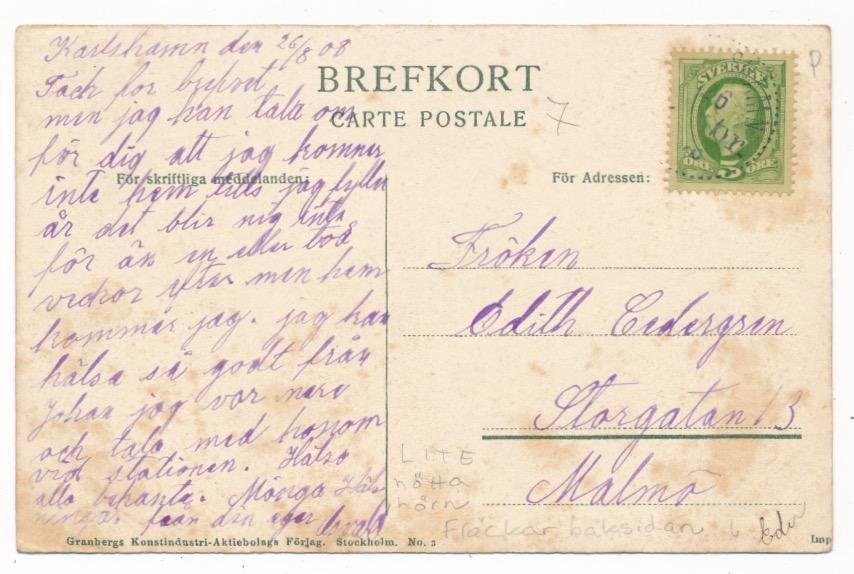 Karlshamn den 26/8 08
Tack for brefvet
men jag kan tala om
för dig att jag kommer
inte hem tills jag fyller
år det blir nig inte
för än en eller två
veckor efter men hem
kommer jag. jag kan
hälsa så godt från
Johan jag var nere
och tala med honom
vid stationen. Hälsa
alla bekanta. Många Häls
ningar från din egen
BREFKORT
CARTE POSTALE
7
P
För skriftliga meddelanden:
För Adressen:
SVERIGE
5
ÖRE ÖRE
Fröken
Edith Cedergren
Storgatan 13
Malmö
LITE
nötta
hörn
Fläckar baksidan
Granbergs Konstindustri-Aktiebolags Förlag. Stockholm. No. 3
Imp